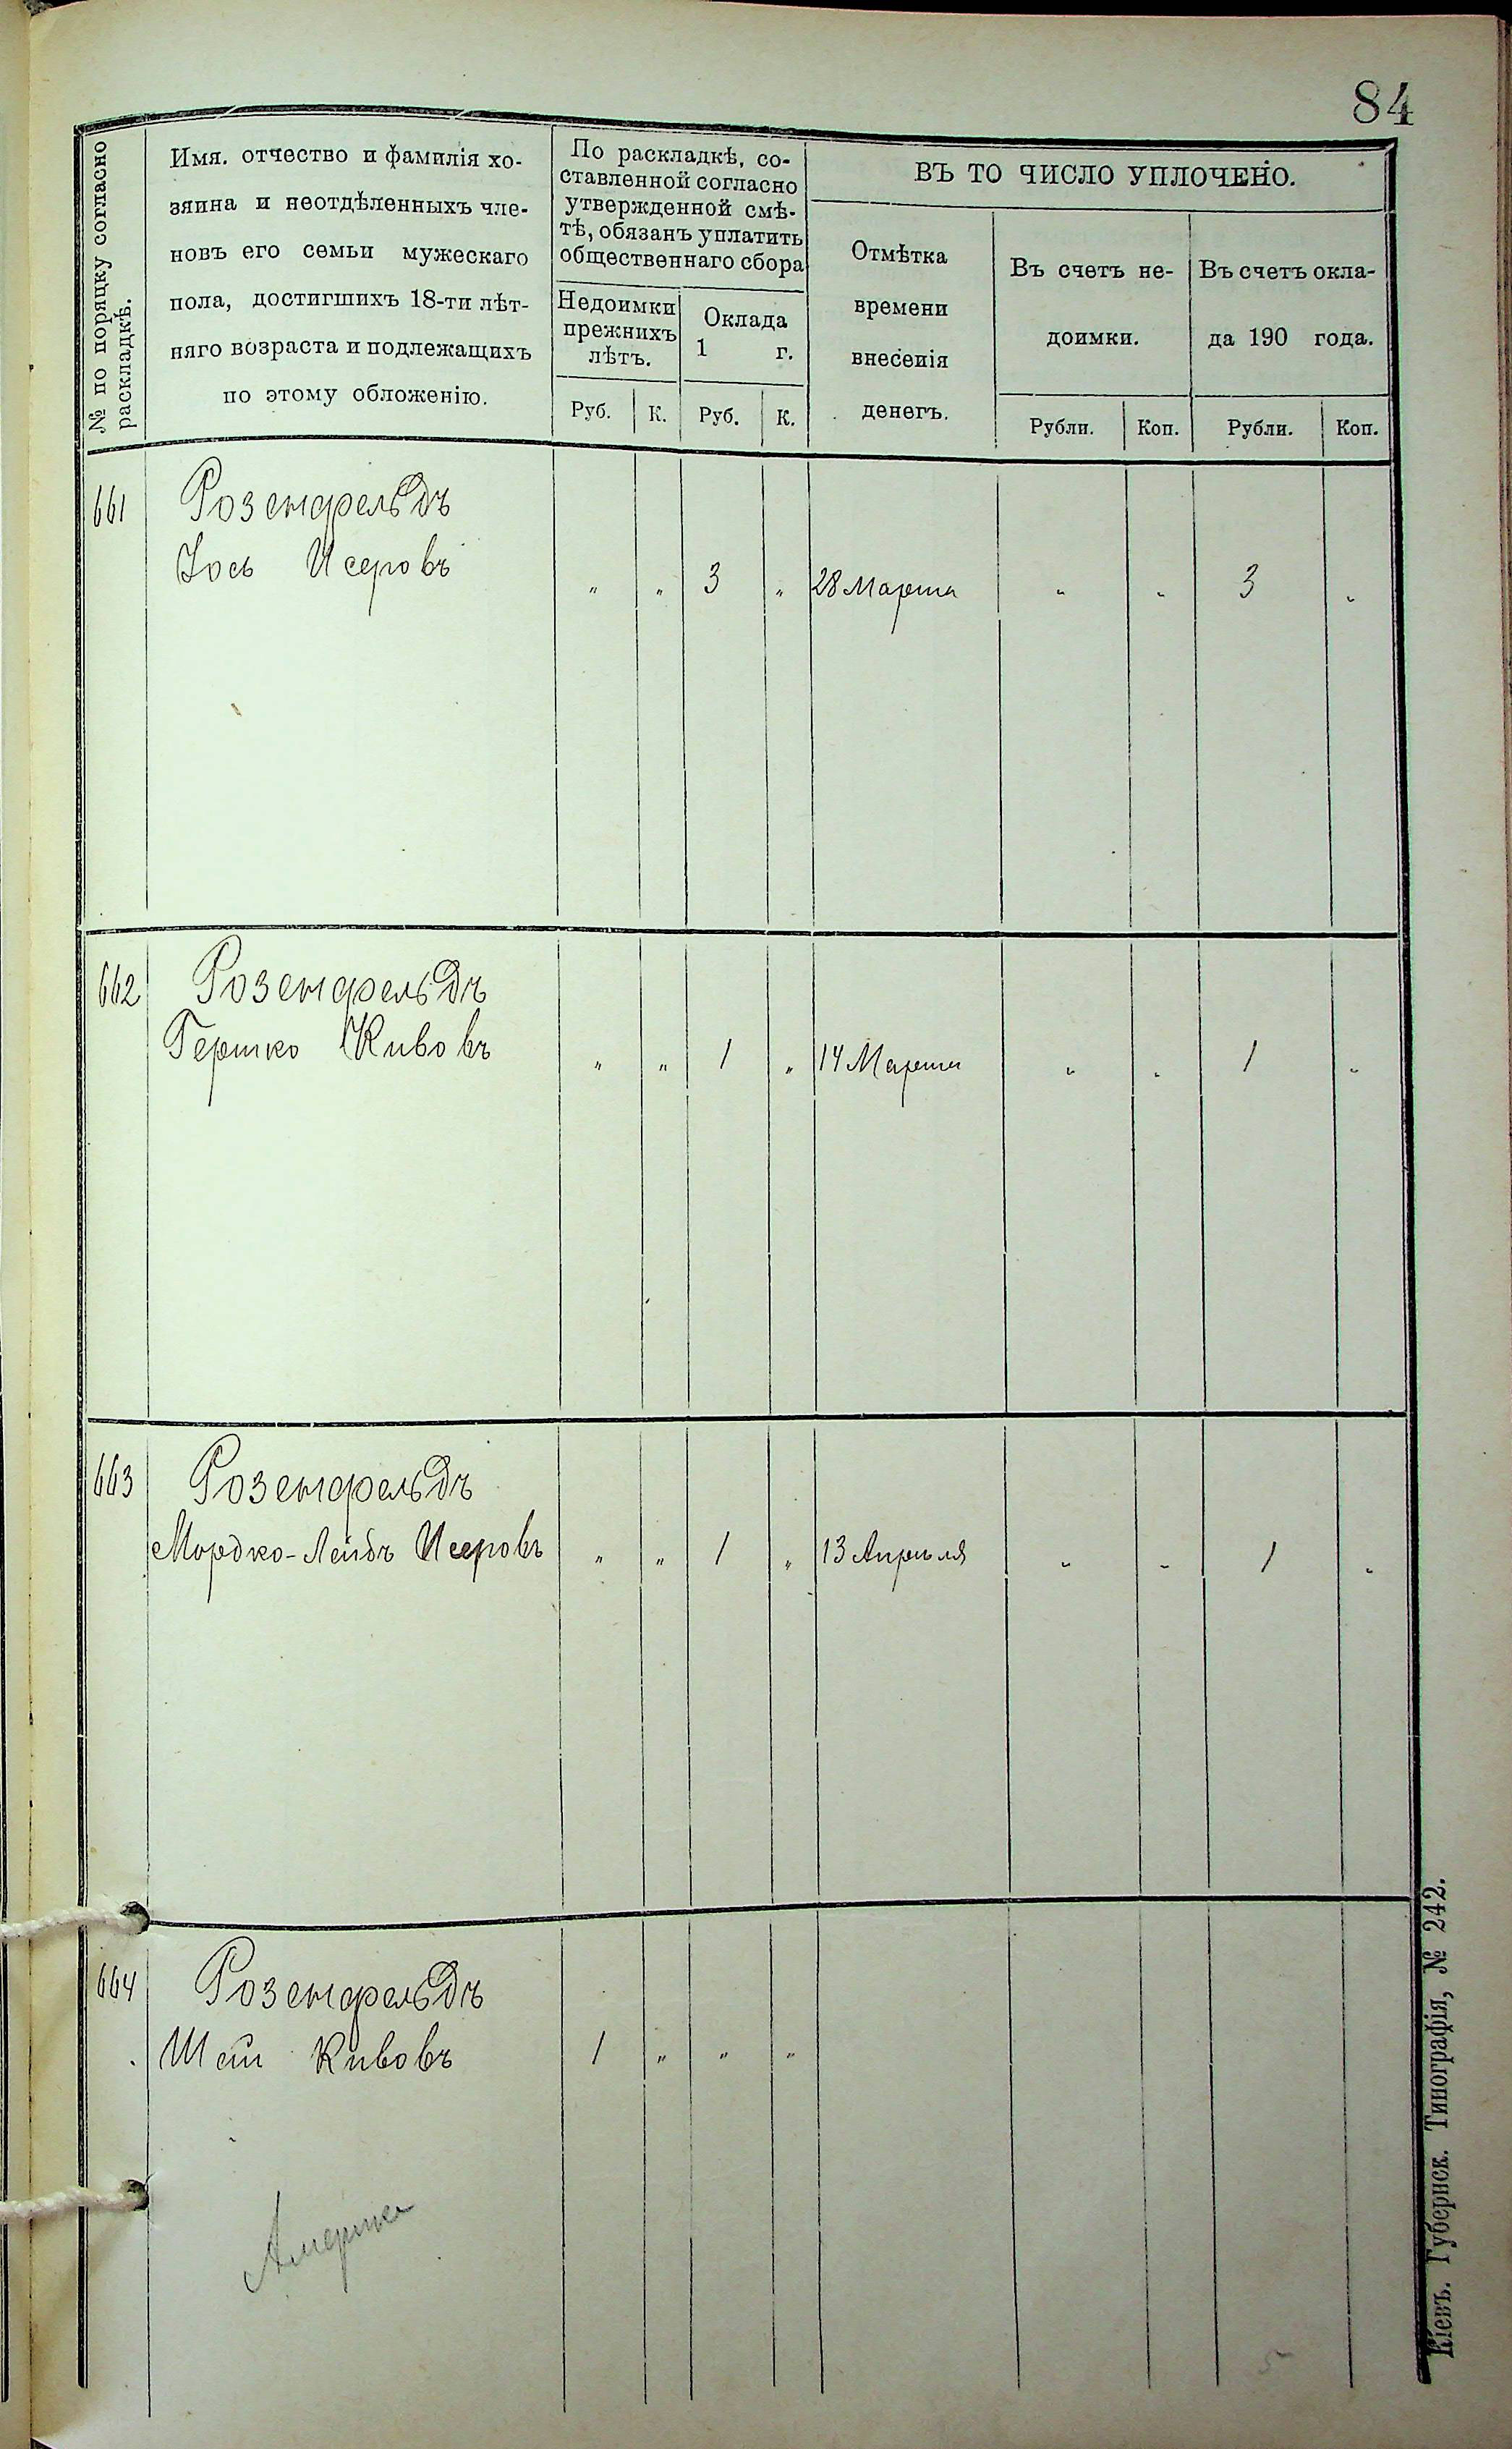 84
№ по поряцку согласно
раскладкѣ.
Имя. отчество и фамилія хо-
зяина и неотдѣленныхъ чле-
новъ его семьи мужескаго
пола, достигшихъ 18-ти лѣт-
няго возраста и подлежащихъ
по этому обложенію.
По раскладкѣ, со-
ставленной согласно
утвержденной смѣ-
тѣ, обязанъ уплатить
общественнаго сбора
Недоимки
прежнихъ
лѣтъ.
Оклада
1 г.
Руб. К. Руб. К.
ВЪ ТО ЧИСЛО УПЛОЧЕНО.
Отмѣтка
времени
внесенія
денегъ.
Въ счетъ не-
доимки.
Въ счетъ окла-
да 190 года.
Рубли. Коп. Рубли. Коп.
661 Розенфельдъ
Іось Исеровъ „ „ 3 „ 28 Марта „ „ 3 „
662 Розенфельдъ
Гершко Кивовъ „ „ 1 „ 14 Марта „ „ 1 „
663 Розенфельдъ
Мордко-Лейбъ Исеровъ „ „ 1 „ 13 Апрѣля „ „ 1 „
664 Розенфельдъ
Шая Кивовъ 1 „ „ „
Америка
5
Кіевъ. Губернск. Типографія, № 242.